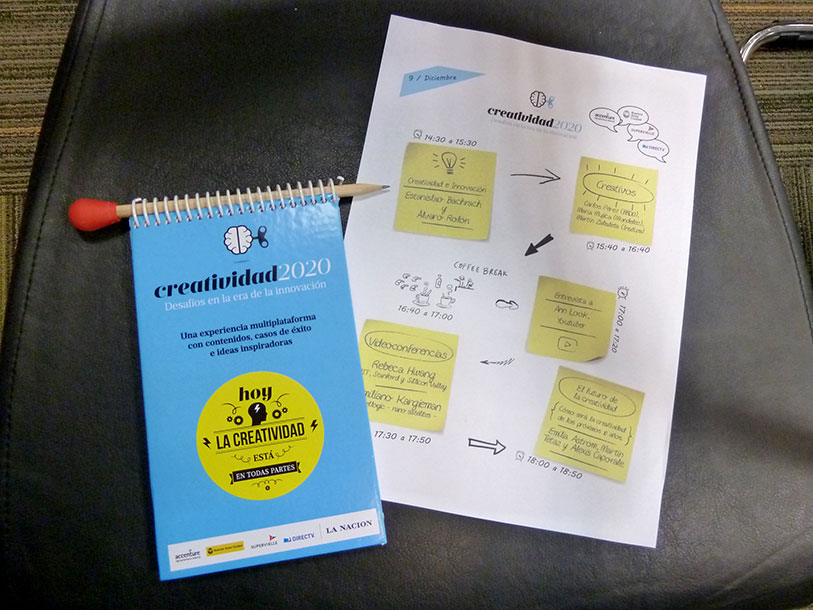 creatividad2020
Desafíos en la era de la innovación
Una experiencia multiplataforma
con contenidos, casos de éxito
e ideas inspiradoras
hoy
LA CREATIVIDAD
ESTÁ
EN TODAS PARTES
accenture
Buenos Aires Ciudad
SUPERVIELLE
DIRECTV
LA NACION
9 / Diciembre
creatividad2020
Desafíos en la era de la innovación
accenture
SUPERVIELLE
DIRECTV
14:30 a 15:30
Creatividad e Innovación
Estanislao Bachrach
y
Álvaro Rolón
Creativos
Carlos Pérez (BBDO),
María Mujica (Mondelez),
Martín Zabaleta
15:40 a 16:40
COFFEE BREAK
16:40 a 17:00
Entrevista a
Ann Look,
Youtuber
17:00 a 17:20
Videoconferencias
Rebeca Hwang
Stanford y Silicon Valley
Emiliano Kargieman
17:30 a 17:50
El futuro de
la creatividad
Cómo será la creatividad
de los próximos 5 años
Emilia Astrom, Martín
Tetaz y Alexis Caporale
18:00 a 18:50